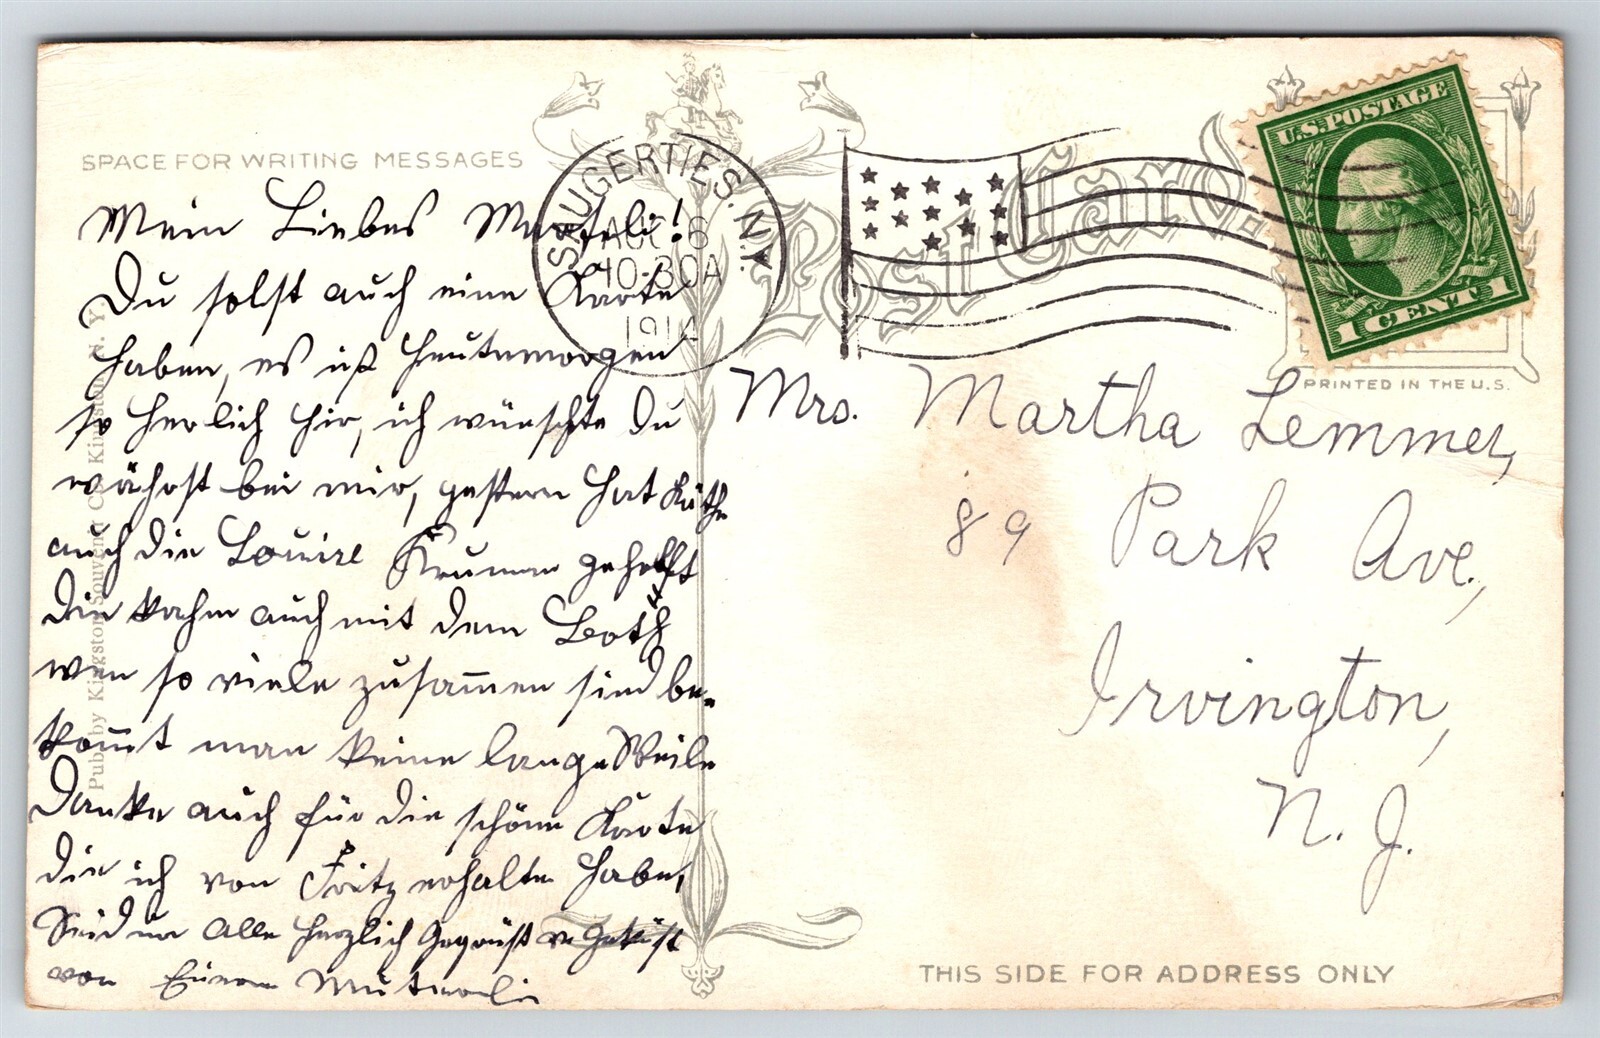 SPACE FOR WRITING MESSAGES
Post Card.
SAUGERTIES. N.Y.
AUG 6
10-30A
191
U.S. POSTAGE
1 CENT 1
PRINTED IN THE U.S.
Mein Liebes Marteli!
Du solst auch eine Karte
haben, es ist heutemorgen
so herlich hir, ich wünschte Du
währst bei mir, gestern hat Käthe
auch die Louise geholft
die kahm auch mit dem Both
wen so viele zusam̅en sind be-
kom̅t man keine lange Weile
Danke auch für die schöne Karte
die ich von Fritz erhalten habe,
Seid nur alle herzlich Gegrüßt u Geküst
von Eurem Mütterli
Mrs. Martha Lemmer,
89 Park Ave.,
Irvington,
N. J.
THIS SIDE FOR ADDRESS ONLY
Pub. by Kingston Souvenir Co. Kingston N. Y.